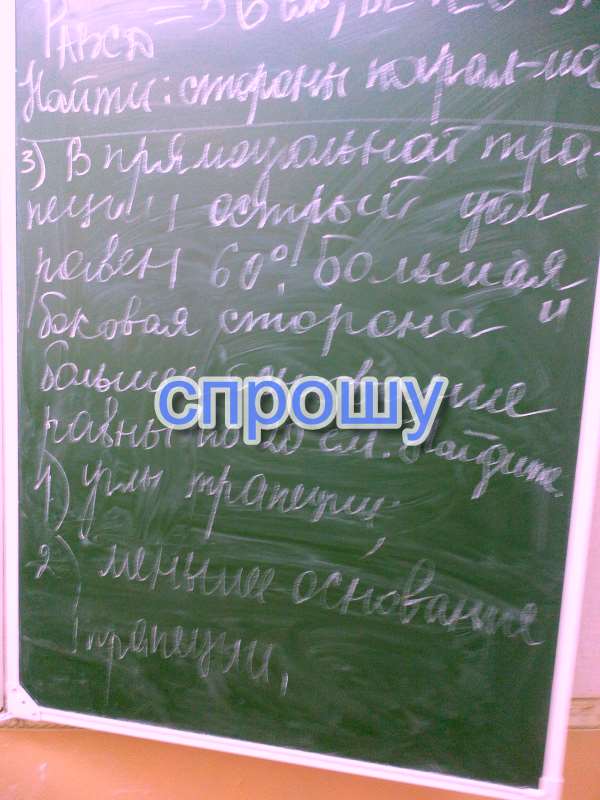 P ABCD = 36 см,
Найти: стороны парал-ма
3) В прямоугольной тра-
пеции острый угол
равен 60°, большая
боковая сторона и
большее основание
равны по 20 см. Найдите:
1) углы трапеции;
2) меньшее основание
трапеции.
спрошу